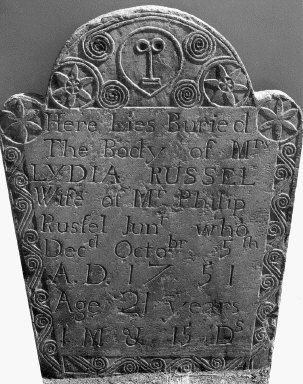 Here Lies Buried
The Body of Mrs
LYDIA RUSSEL
Wife of Mr Philip
Rusſel Junr who
Decd Octobr 5th
A.D. 1751
Age 21 years
1 M & 15 Ds